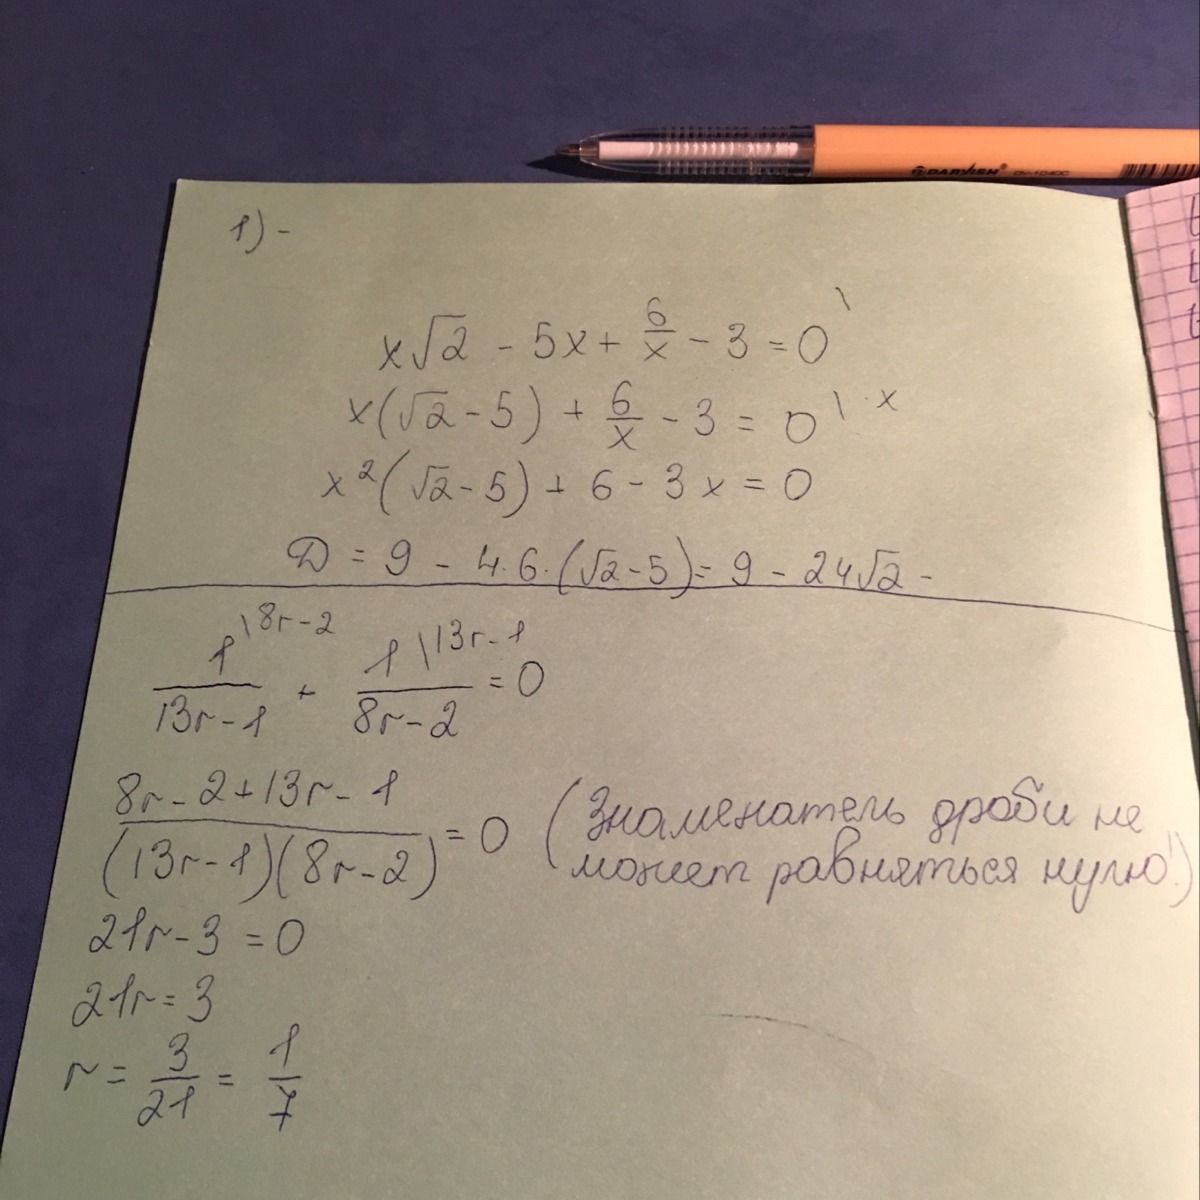 DARVISH®
1) -
x√2 - 5x + 6/x - 3 = 0 \
x(√2 - 5) + 6/x - 3 = 0 \ · x
x²(√2 - 5) + 6 - 3x = 0
D = 9 - 4·6·(√2 - 5) = 9 - 24√2 -
1\8r-2/13r-1 + 1\13r-1/8r-2 = 0
8r-2+13r-1/(13r-1)(8r-2) = 0 (Знаменатель дроби не
может равняться нулю!)
21r - 3 = 0
21r = 3
r = 3/21 = 1/7